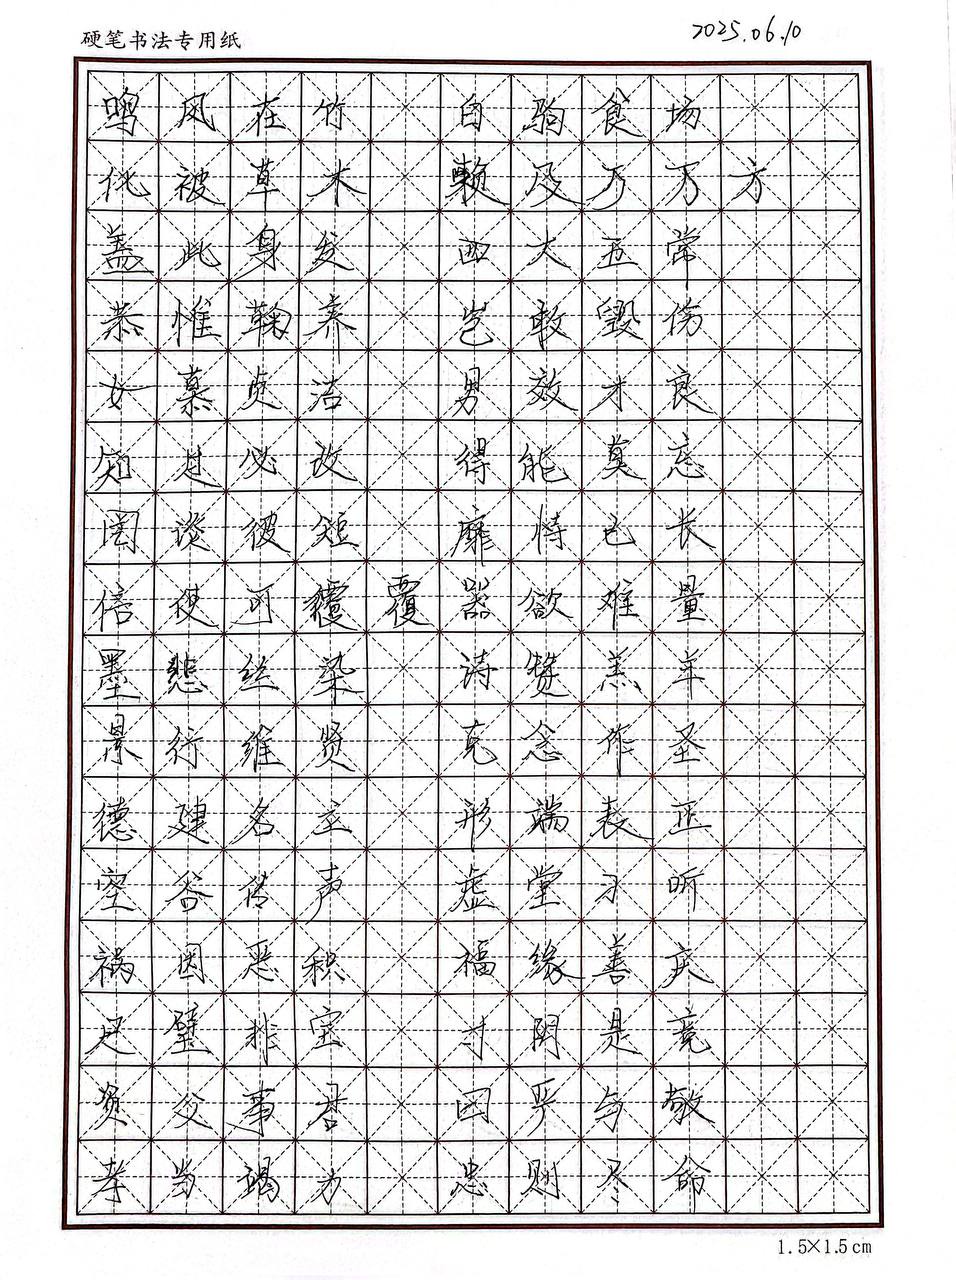 硬笔书法专用纸 2025.06.10
鸣凤在竹 白驹食场
化被草木 赖及万万方
盖此身发 四大五常
恭惟鞠养 岂敢毁伤
女慕贞洁 男效才良
知过必改 得能莫忘
罔谈彼短 靡恃己长
信使可覆覆 器欲难量
墨悲丝染 诗赞羔羊
景行维贤 克念作圣
德建名立 形端表正
空谷传声 虚堂习听
祸因恶积 福缘善庆
尺璧非宝 寸阴是竞
资父事君 曰严与敬
孝当竭力 忠则尽命
1.5×1.5cm